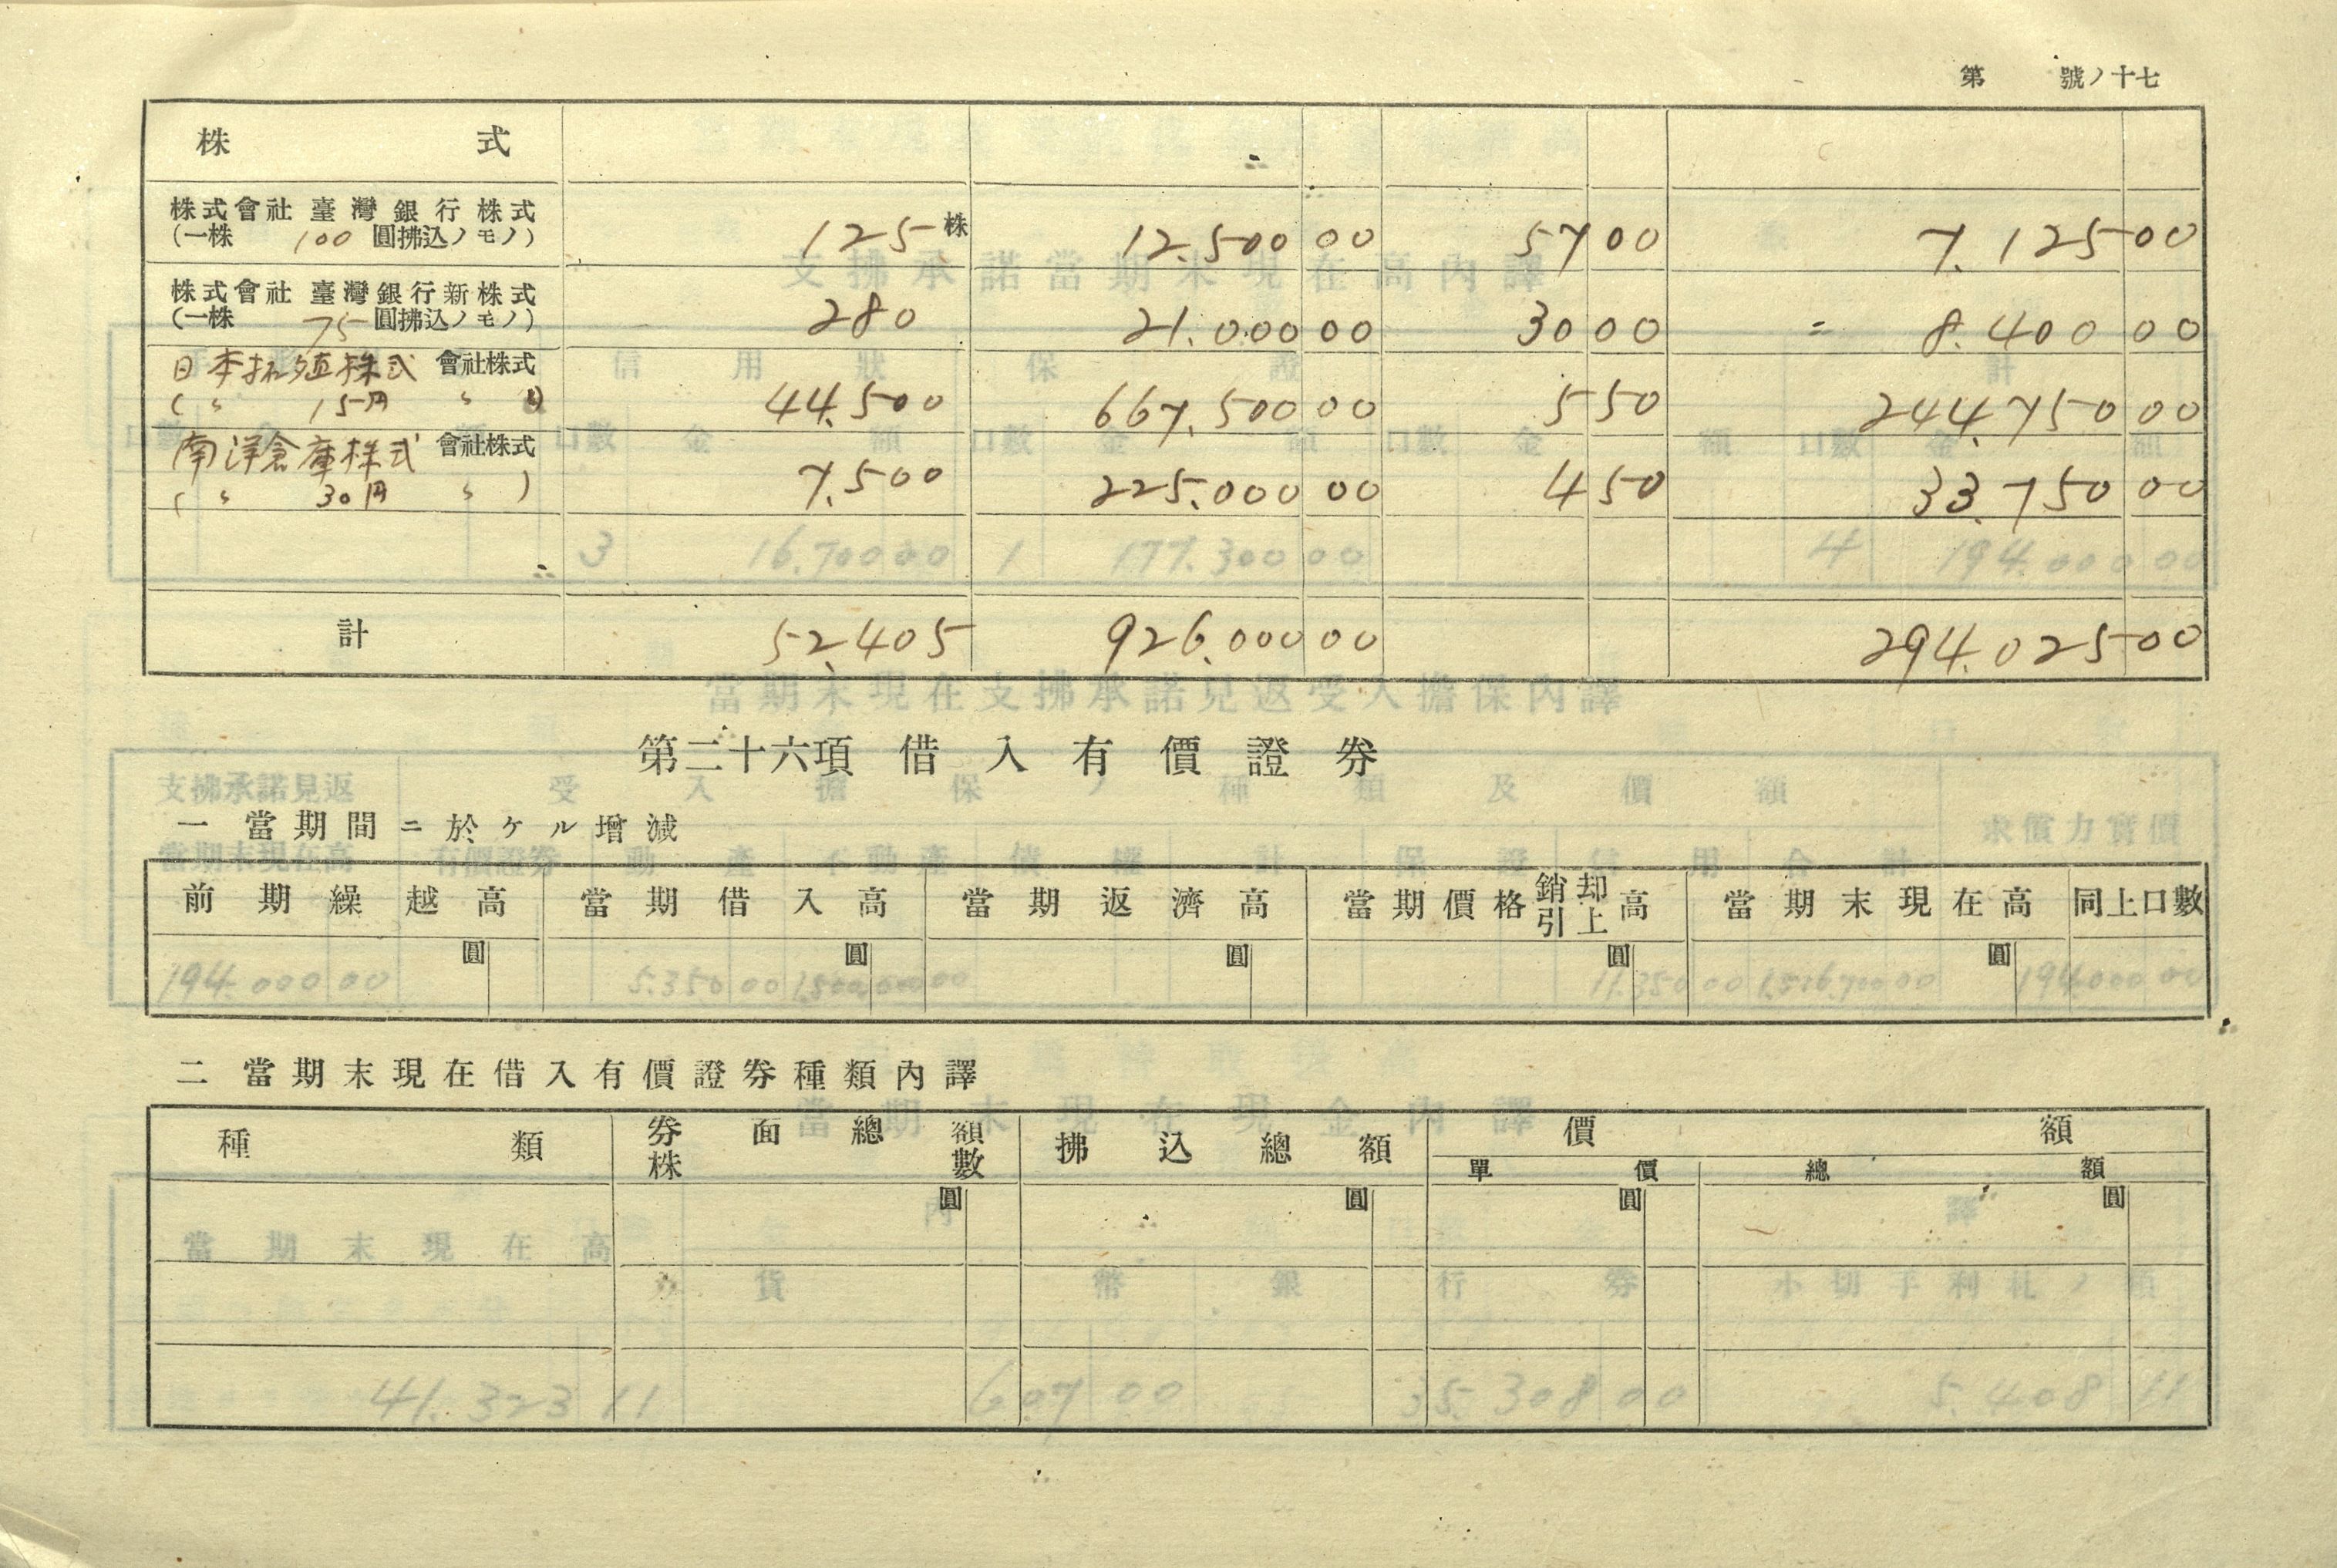 第 號ノ十七
株 式
株式會社 臺灣銀行 株式 125株 12.500 00 57 00 7.125 00
(一株 100 圓拂込ノモノ)
株式會社 臺灣銀行新株式 280 21.000 00 30 00 8.400 00
(一株 75 圓拂込ノモノ)
日本拓殖株式 會社株式 44.500 667.500 00 5 50 244.750 00
( 〃 15円 〃 )
南洋倉庫株式 會社株式 7.500 225.000 00 4 50 33.750 00
( 〃 30円 〃 )
計 52.405 926.000 00 294.025 00
第二十六項 借入有價證券
一 當期間ニ於ケル增減
前期繰越高 當期借入高 當期返濟高 當期價格銷却引上高 當期末現在高 同上口數
圓 圓 圓 圓 圓
二 當期末現在借入有價證券種類內譯
種類 券面總額 株數 拂込總額 價額
單價 總額
圓 圓 圓 圓